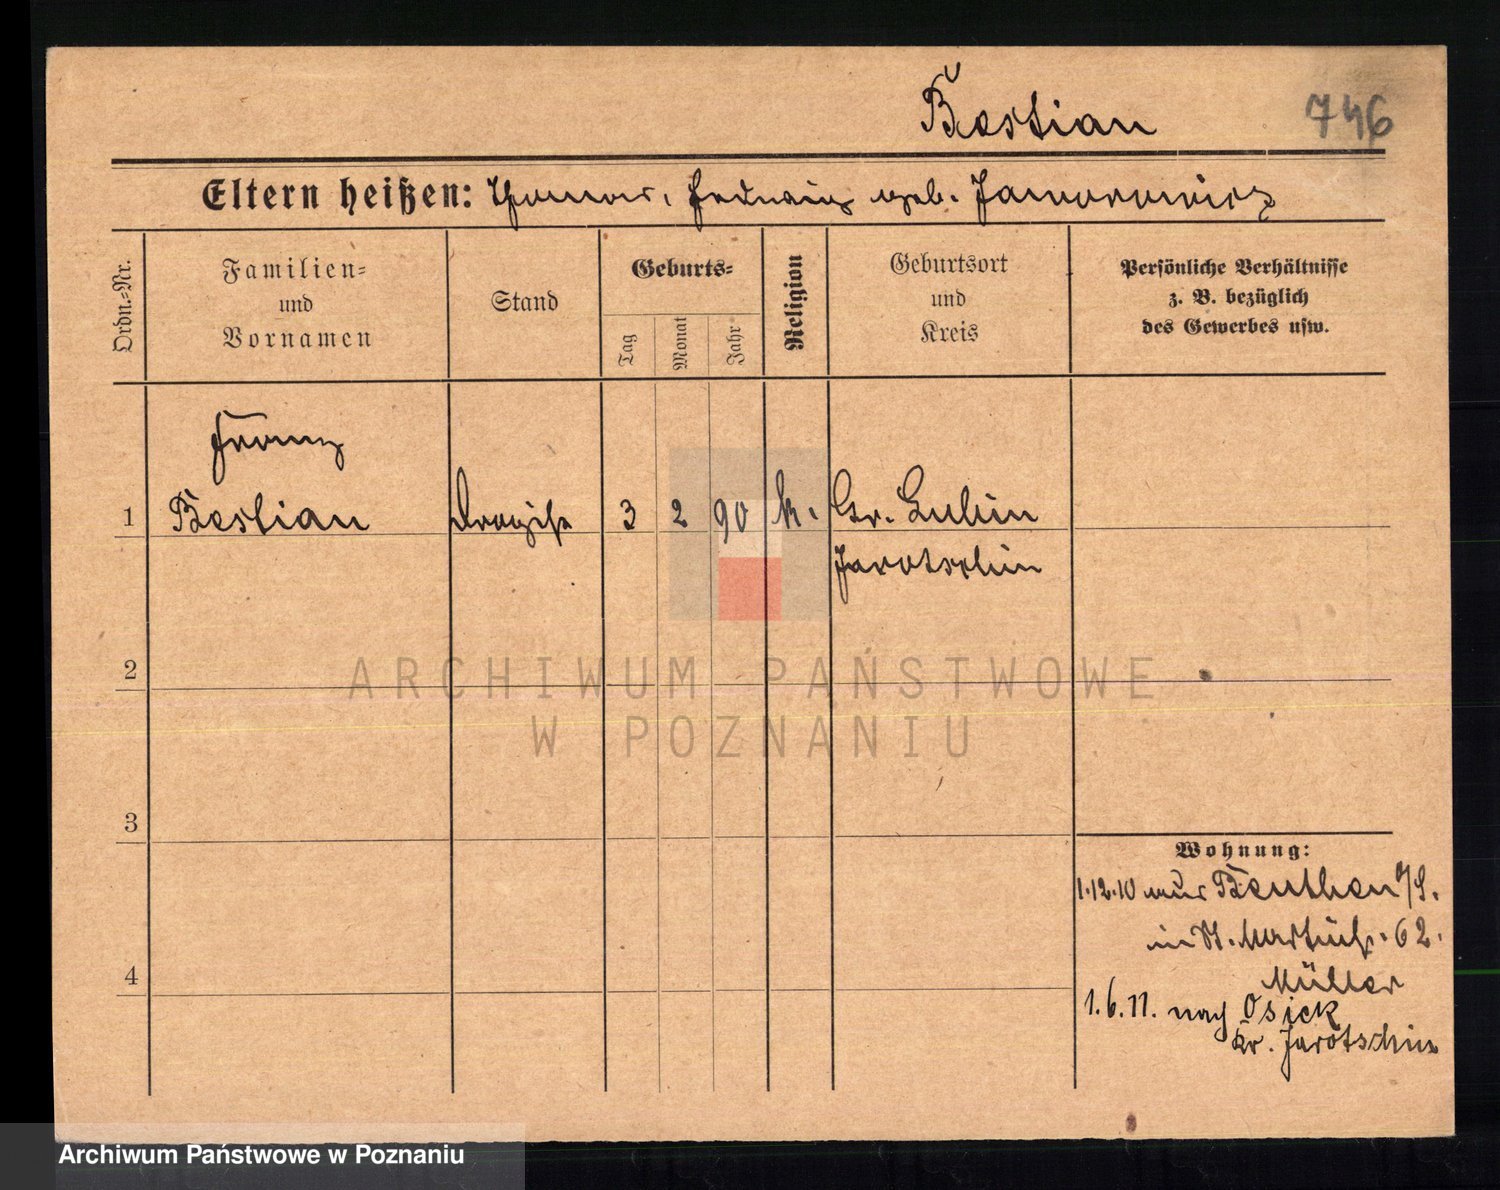 Bestian
746
Eltern heißen: Thomas, Hedwig geb. Jaworowicz
Ordn.-Nr.
Familien-
und
Vornamen
Stand
Geburts-
Tag
Monat
Jahr
Religion
Geburtsort
und
Kreis
Persönliche Verhältnisse
z. B. bezüglich
des Gewerbes usw.
Franz
1 Bestian Drogist 3 2 90 k. Gr. Lubin
Jarotschin
2
3
4
Wohnung:
1.12.10 aus Beuthen O/S.
in St. Martinstr. 62.
Müller
1.6.11. nach Osiek
Kr. Jarotschin
ARCHIWUM PAŃSTWOWE
W POZNANIU
Archiwum Państwowe w Poznaniu